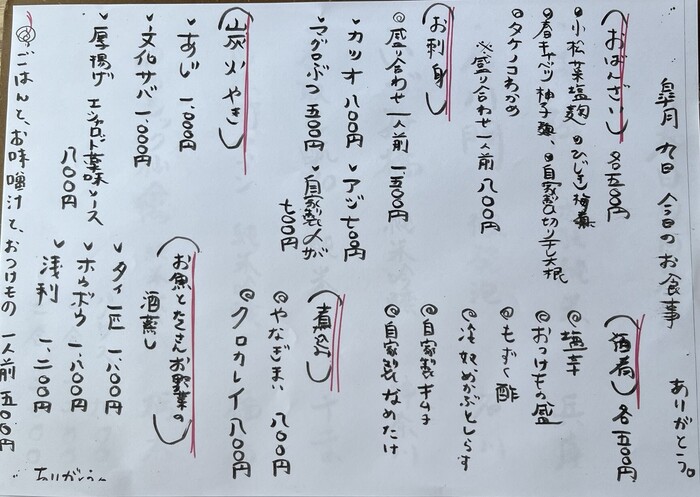 皐月 九日 今日のお食事
ありがとう。
(おばんざい) 各五〇〇円
◎小松菜塩麹 ◎ひじき梅煮
◎春キャベツ柚子麹、◎自家製切り干し大根
◎タケノコわかめ
※盛り合わせ一人前 八〇〇円
(お刺身)
◎盛り合わせ 一人前 一、五〇〇円
✓カツオ 八〇〇円 ✓アジ 七〇〇円
✓マグロぶつ 五〇〇円 ✓自家製〆さば
七〇〇円
(炭火やき)
✓あじ 一、〇〇〇円
✓文化サバ 一、〇〇〇円
✓厚揚げ エシャロット薬味ソース
八〇〇円
(酒肴) 各五〇〇円
◎塩辛
◎おつけもの盛
◎もずく酢
◎冷奴、めかぶとしらす
◎自家製キムチ
◎自家製なめたけ
(煮込み)
◎やなぎまい 八〇〇円
◎クロカレイ 八〇〇円
(お魚とたくさんお野菜の
酒蒸し)
✓タイ一匹 一、八〇〇円
✓ホウボウ 一、八〇〇円
✓浅利 一、二〇〇円
◎ごはんと、お味噌汁と、おつけもの 一人前 五〇〇円
ありがとう